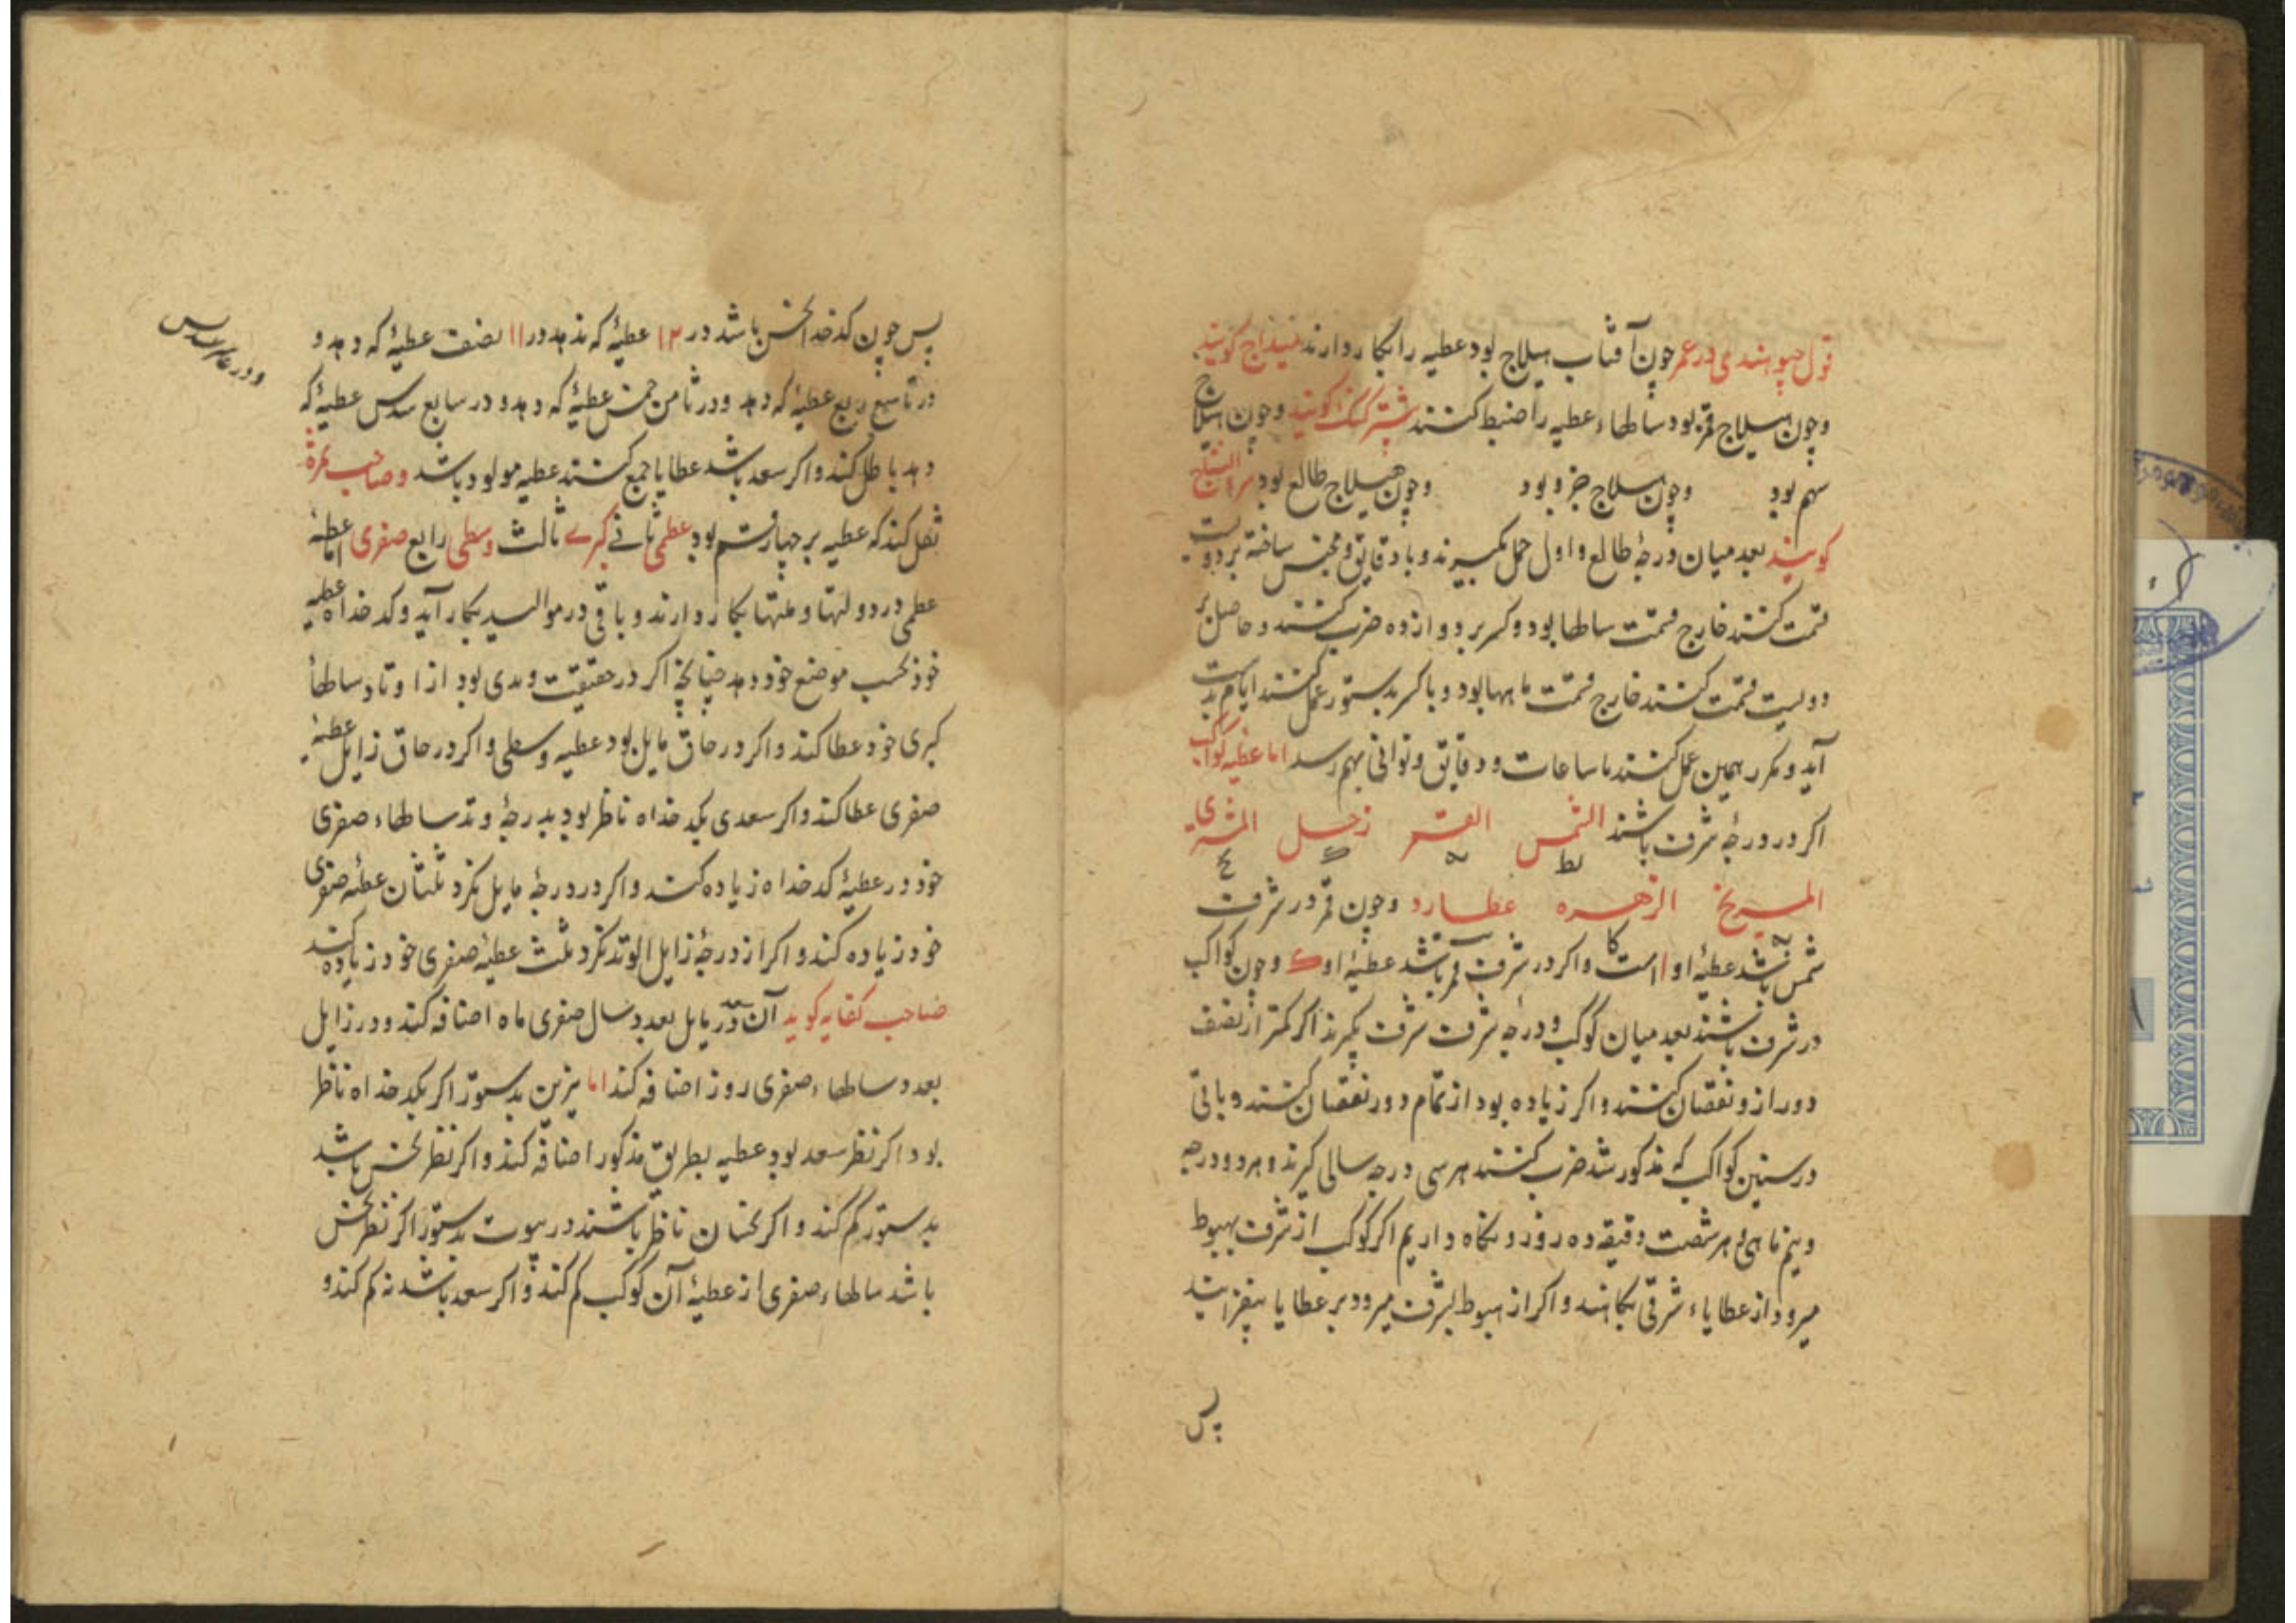 قول جیو هندی در عمر چون آفتاب هیلاج بود عطیه را بکار دارند کویند
و چون هیلاج قمر بود ساطهاء عطیه را ضبط کنند کویند و چون هیلاج
سهم بود و چون هیلاج جزو بود و چون هیلاج طالع بود
کویند بعد میان درجهٔ طالع و اول حمل بکیرند و با دقایق مجنس ساخته بر دویست
قسمت کنند خارج قسمت ساطها بود و کسر بر دوازده ضرب کنند و حاصل بر
دویست قسمت کنند خارج قسمت ماهها بود و با کسر بدستور عمل کنند ایام بدست
آید و مکرر همین عمل کنند تا ساعات و دقایق و ثوانی بهم رسد اما عطیه کواکب
اکر در درجهٔ شرف باشند الشمس القمر زحل المشتری
المریخ الزهره عطارد و چون قمر در شرف
شمس باشد عطیهٔ او است و اکر در شرف قمر باشد عطیهٔ او ک و چون کواکب
در شرف باشند بعد میان کوکب و درجه شرف شرف بکیرند اکر کمتر از نصف
دور از و نقصان کنند و اکر زیاده بود از تمام دور نقصان کنند و باقی
در سنین کواکب که مذکور شد ضرب کنند هر سی درجه سالی کیرند و هر دو درجه
و نیم ماهی و هر شصت دقیقه ده روز و نکاه داریم اکر کوکب از شرف بهبوط
میرود از عطایاء شرفی بکاهند و اکر از هبوط بشرف میرود بر عطایا بیفزایند
پس
پس چون کدخدا نحس باشد در ۱۲ عطیهٔ که ندهد در ۱۱ نصف عطیهٔ که دهد و
و در عاشر سدس
در تاسع ربع عطیهٔ که دهد و در ثامن خمس عطیهٔ که دهد و در سابع سدس عطیهٔ که
دهد باطل کند و اکر سعد باشد عطایا جمع کنند عطیه مولود باشد و صاحب ثمرة
نقل کند که عطیه بر چهار قسم بود عظمی ثانی کبرے ثالث وسطی رابع صغری اما عطیهٔ
عظمی در دولتها و ملتها بکار دارند و باقی در موالید بکار آید و کدخداه عطیه
خود بحسب موضع خود دهد چنانچه اکر در حقیقت وتدی بود از اوتاد ساطهأ
کبری خود عطا کند و اکر در حاق مایل بود عطیه وسطی و اکر در حاق زایل عطیهٔ
صغری عطا کند و اکر سعدی بکدخداه ناظر بود بدرجهٔ وتد ساطهاء صغری
خود در عطیهٔ کدخداه زیاده کند و اکر در درجهٔ مایل نکرد ثلثان عطیه صغری
خود زیاده کند و اکر از درجهٔ زایل الوتد نکرد ثلث عطیهٔ صغری خود زیاده کند
صاحب کفایه کوید آن سعد در مایل بعدد سال صغری ماه اضافه کند و در زایل
بعدد ساطهاء صغری روز اضافه کند اما بدستور اکر بکدخداه ناظر
بود اکر نظر سعد بود عطیه بطریق مذکور اضافه کند و اکر نظر نحس باشد
بدستور کم کند و اکر نحسان ناظر باشند در بیوت بدستور اکر نظر نحس
باشد ساطهاء صغری از عطیهٔ آن کوکب کم کند و اکر سعد باشد نه کم کند و